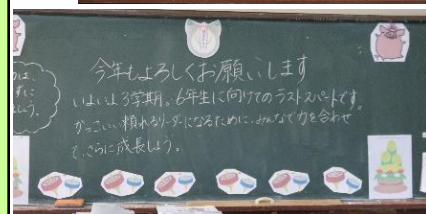 今年もよろしくお願いします
いよいよ3学期。6年生に向けてのラストスパートです。
かっこいい頼れるリーダーになるために、みんなで力を合わせ
て、さらに成長しよう。